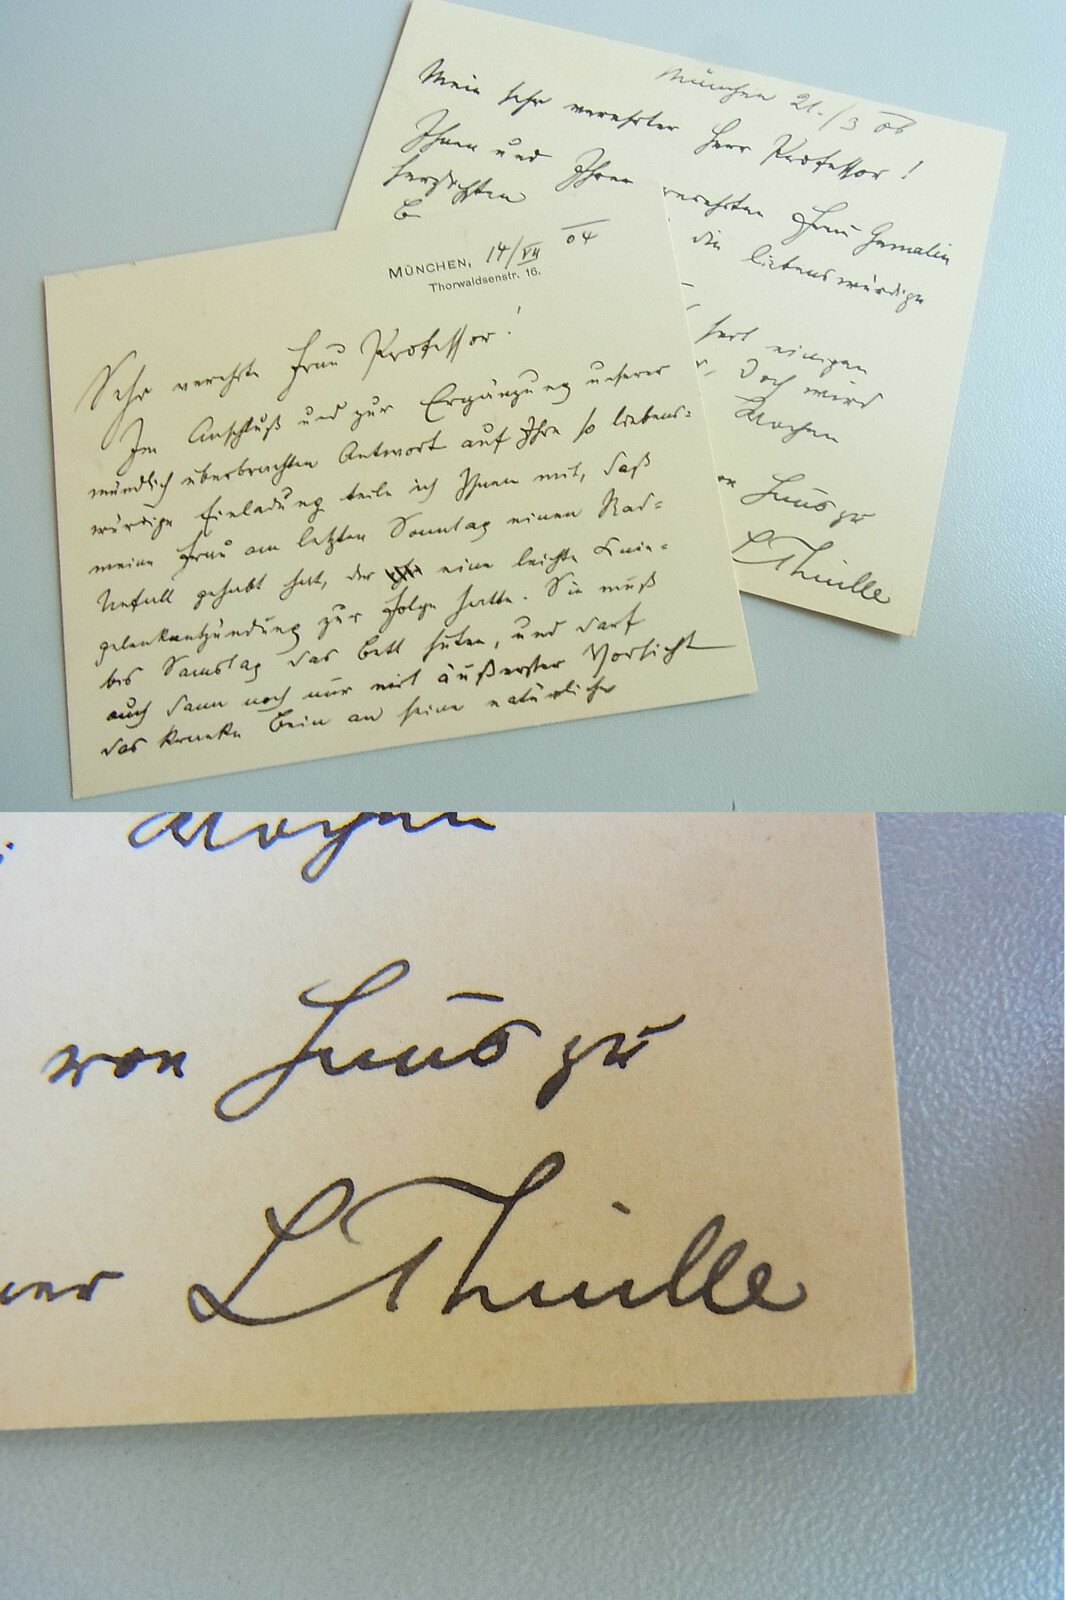 München 21./3 06
Mein sehr verehrter Herr Professor!
Ihnen und Ihrer verehrten Frau Gemalin
herzlichsten
die liebenswürdige
hert einigen
Doch wird
Wochen
von Haus zu
L Thuille
MÜNCHEN, 14/VII 04
Thorwaldsenstr. 16.
Sehr verehrte Frau Professor!
Im Anschluß und zur Ergänzung unserer
mündlich überbrachten Antwort auf Ihre so liebens-
würdige Einladung teile ich Ihnen mit, daß
meine Frau am letzten Sonntag einen Rad-
Unfall gehabt hat, der eine leichte Knie-
gelenkentzündung zur Folge hatte. Sie muß
bis Samstag das Bett hüten, und darf
auch dann noch nur mit äußerster Vorsicht
das kranke Bein an seine natürliche
Wochen
von Haus zu
L Thuille